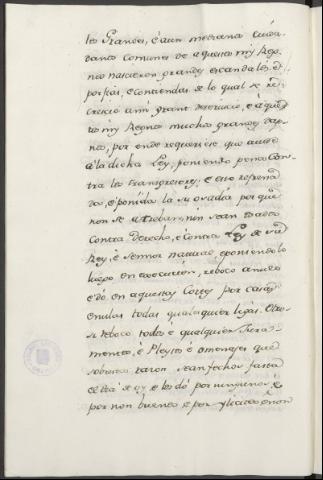 los Grandes, é aun mediana cuida
danos comunes de aquestos mis Reg
nos nascieron grandes escandalos, é
porfias, é contiendas de lo qual se re
crescio a mi grant deservicio, é a aques
tos mis Regnos muchos grandes dap
nos, por ende
á la dicha Ley, poniendo pena con
tra los transgresores, é
da, é ponida la su osadia por que
non se atreban, nin sean osados
contra derecho, é contra Ley de su
Rey, é Señor natural é poniendolo
luego en execucion, reboco anulo
é dó en aquestas Cortes por casas
é nulas todas qualesquier ligas. Otro
si reboco todos é qualquier Jura
mentos, é Pleytos é omenages que
sobresta razon sean fechos fasta
el dia de oy, é los dó por ningunos é
por non buenos é por ylicitos é non